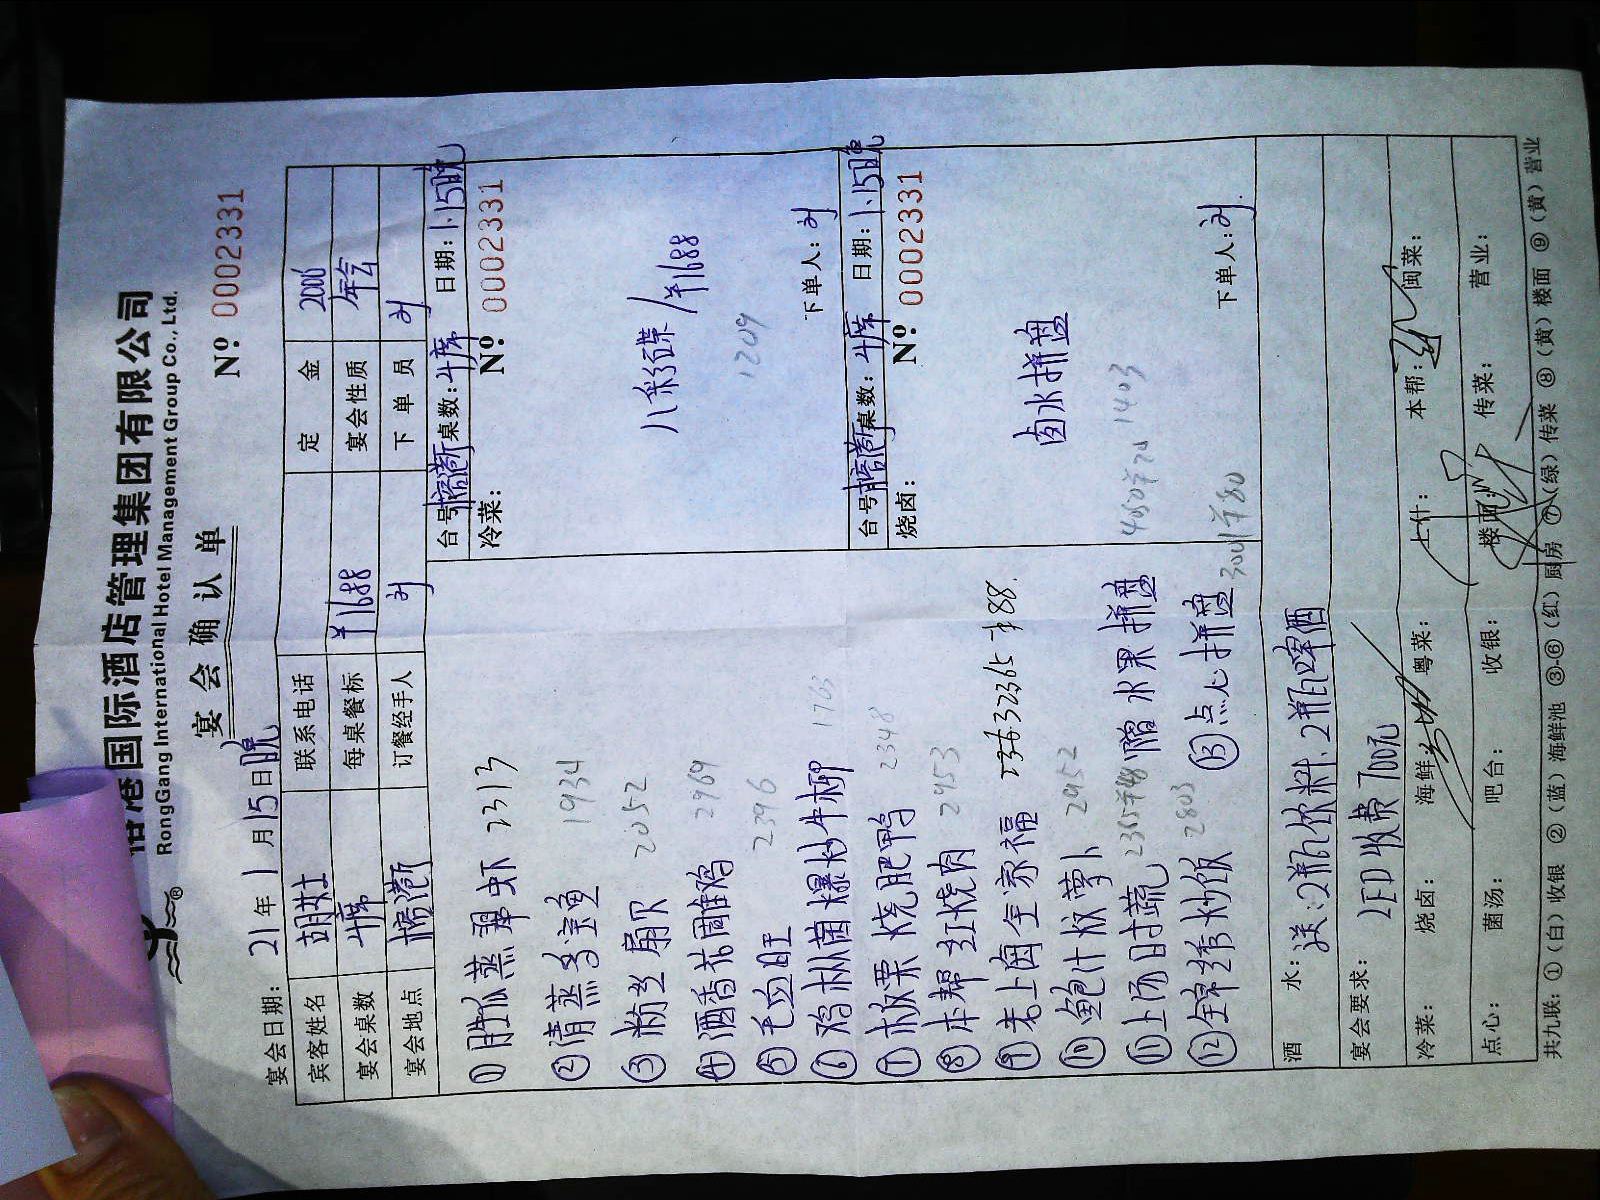 港国际酒店管理集团有限公司
RongGang International Hotel Management Group Co., Ltd.
宴会确认单
Nº 0002331
宴会日期: 21年1月15日晚
宾客姓名 胡女士 联系电话 定金 2000
宴会桌数 4席 每桌餐标 ¥1688 宴会性质 年会
宴会地点 榕港厅 订餐经手人 下单员
台号 榕港厅 桌数: 4席 日期: 1.15晚
冷菜: Nº 0002331
八彩碟/¥1688
1209
下单人:
台号 榕港厅 桌数: 4席 日期: 1.15晚
烧卤: Nº 0002331
卤水拼盘
1403
下单人:
① 胜瓜蒸翠虾 2313
② 清蒸多宝鱼 1934
③ 粉丝扇贝 2052
④ 酒香花雕鸡 2969
⑤ 毛血旺 2396
⑥ 鸡枞菌爆炒牛柳 1763
⑦ 板栗烧肥鸭 2348
⑧ 本帮红烧肉 2953
⑨ 老上海全家福 ¥88
⑩ 鲍汁放萝卜 2952
⑪ 上汤时蔬 2365 ¥48
⑫ 锦绣炒饭 2803
赠水果拼盘
⑬ 点心拼盘 3001 ¥80
酒水: 送:2瓶饮料、2瓶啤酒
宴会要求: LED收费700元
冷菜: 烧卤: 海鲜: 粤菜: 上什: 本帮: 闽菜:
点心: 菌汤: 吧台: 收银: 楼面: 传菜: 营业:
共九联: ①(白)收银 ②(蓝)海鲜池 ③-⑥(红)厨房 ⑦(绿)传菜 ⑧(黄)楼面 ⑨(黄)营业